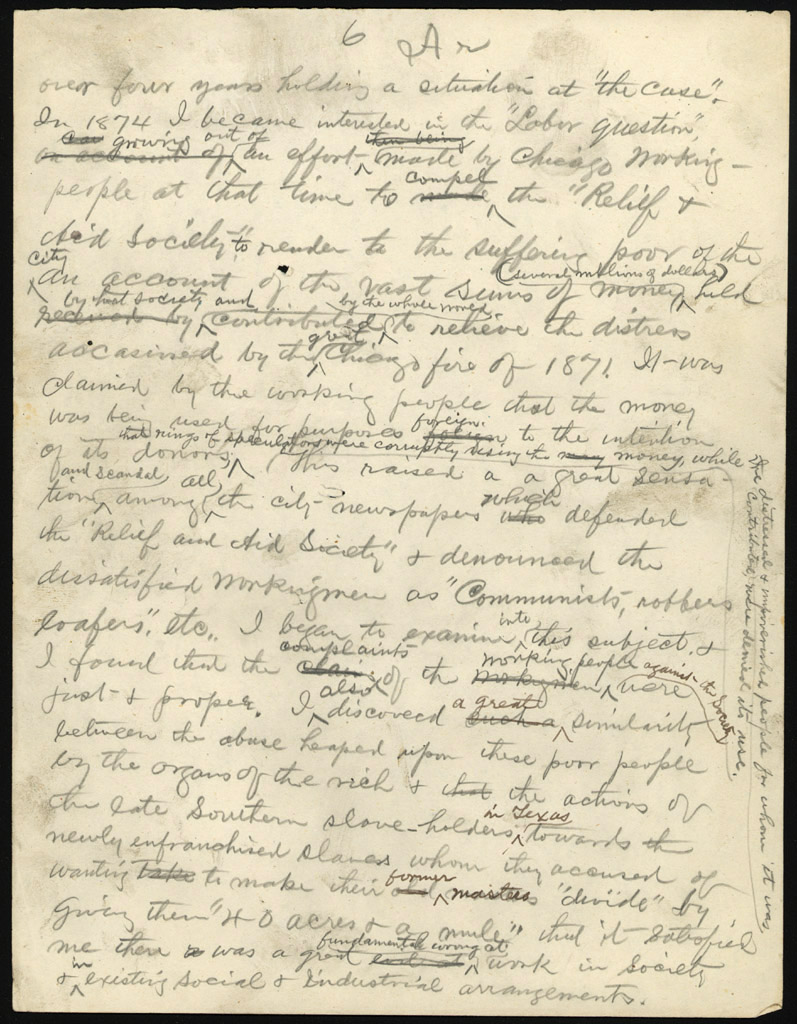 6 A r
over four years holding a situation at "the case".
In 1874 I became interested in the "Labor question",
growing out of then being
on account of an effort made by Chicago Working-
compel
people at that time to made the "Relief &
Aid Society" to render to the suffering poor of the
city (several millions of dollars)
an account of the vast sums of money held
by that society and by the whole world
received by contributed to relieve the distress
great
occasioned by the Chicago fire of 1871. It was
claimed by the working people that the money
foreign
was being used for purposes to the intention
that rings of speculators were corruptly using the money, while
of its donors. This raised a a great sensa-
and scandal all which
tion, among the city newspapers who defended
the "Relief and Aid Society" & denounced the
dissatisfied workingmen as "Communists, robbers
into
loafers", etc., I began to examine this subject, &
complaints working people against the Society
I found that the claims of the workingmen were
also a great
just & proper. I discovered such a similarity
between the abuse heaped upon these poor people
by the organs of the rich & that the actions of
in Texas
the late Southern slave-holders towards th
newly enfranchised slaves whom they accused of
former
wanting take to make their old masters "divide" by
giving them "40 acres & a mule", that it satisfied
fundamental wrong at
me there is was a great work in Society
in
& existing Social & Industrial arrangements.
the distressed & impoverished people for whom it was
contributed, were denied its use.